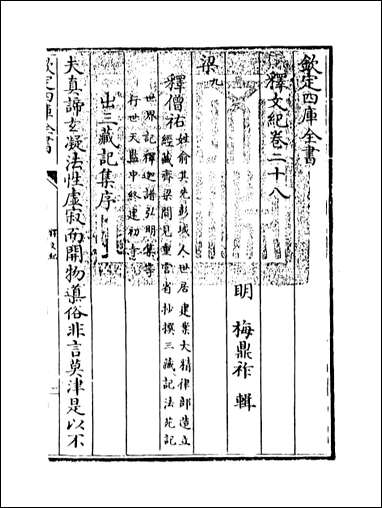 欽定四庫全書
釋文紀卷二十八
明 梅鼎祚 輯
梁九
釋僧祐 姓俞其先彭城人世居建業大精律部造立
經藏齊梁間見重宫省抄撰三藏記法苑記
世界記釋迦譜弘明集等
行世天監中終建初寺
出三藏記集序
夫真諦玄凝法性虛寂而開物導俗非言莫津是以不
欽定四庫全書
釋文紀